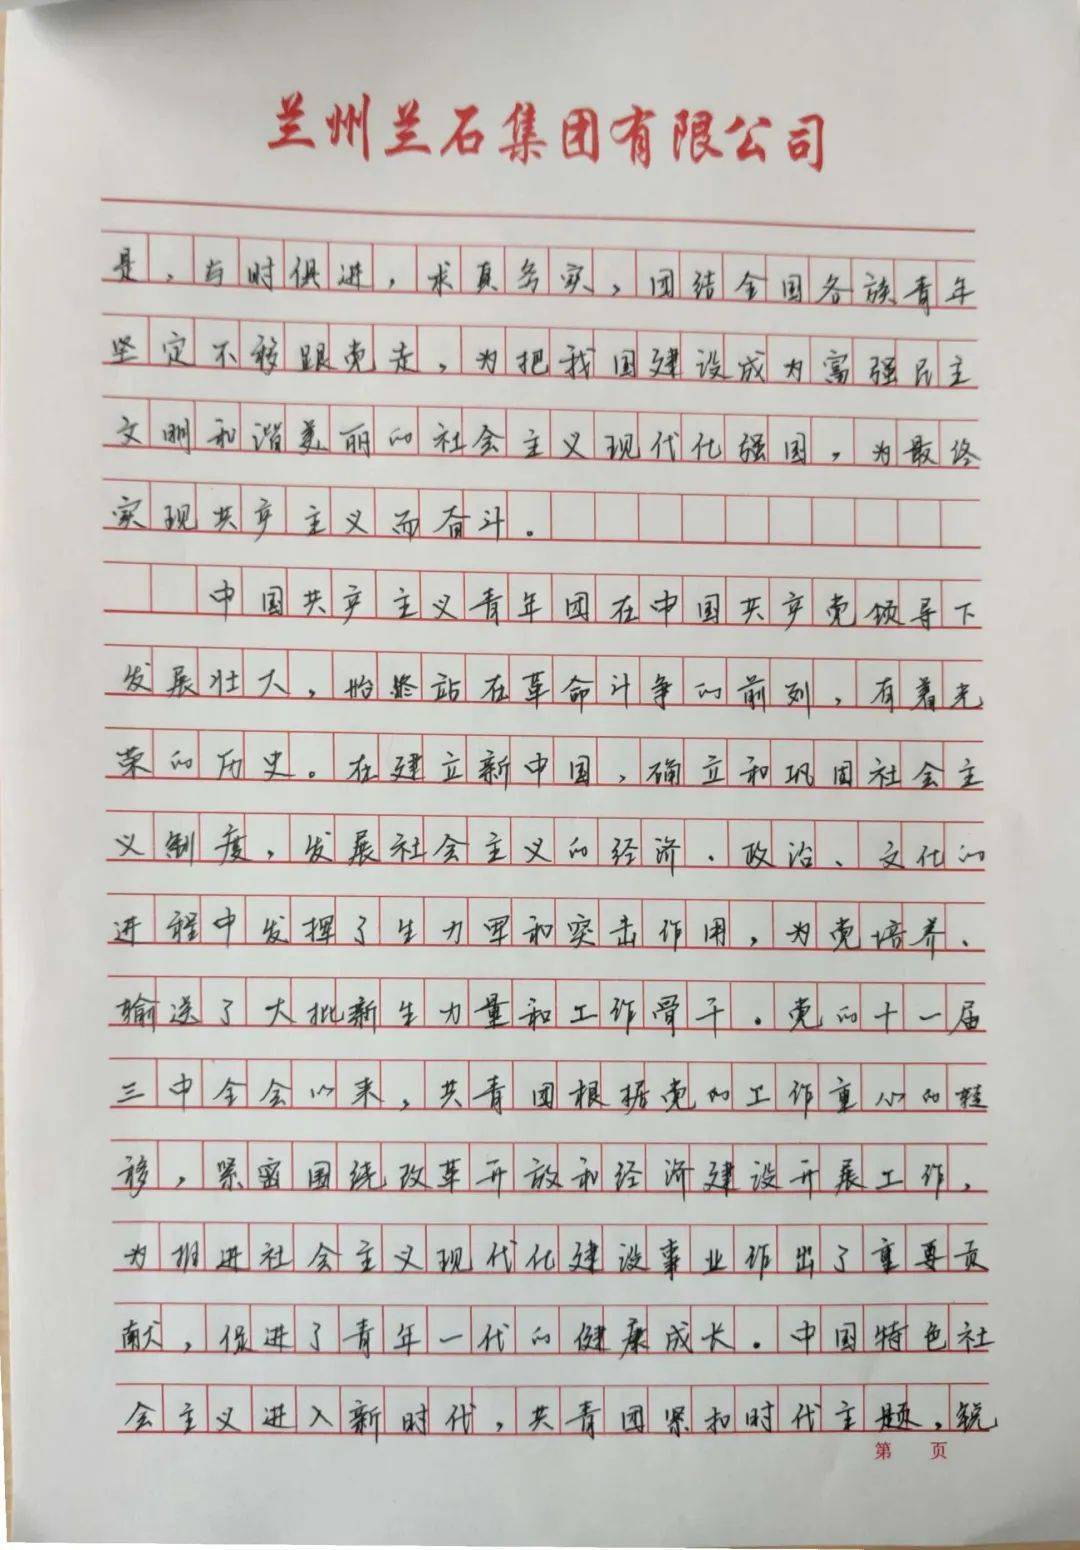 兰州兰石集团有限公司
是，与时俱进，求真务实，团结全国各族青年
坚定不移跟党走，为把我国建设成为富强民主
文明和谐美丽的社会主义现代化强国，为最终
实现共产主义而奋斗。
中国共产主义青年团在中国共产党领导下
发展壮大，始终站在革命斗争的前列，有着光
荣的历史。在建立新中国，确立和巩固社会主
义制度，发展社会主义的经济、政治、文化的
进程中发挥了生力军和突击作用，为党培养、
输送了大批新生力量和工作骨干。党的十一届
三中全会以来，共青团根据党的工作重心的转
移，紧密围绕改革开放和经济建设开展工作，
为推进社会主义现代化建设事业作出了重要贡
献，促进了青年一代的健康成长。中国特色社
会主义进入新时代，共青团紧扣时代主题，锐
第 页